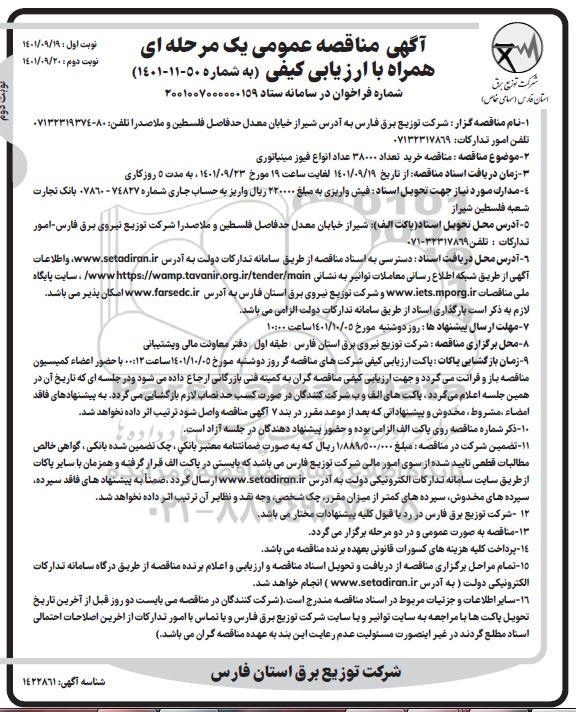 آگهی مناقصه عمومی یک مرحله ای
همراه با ارزیابی کیفی (به شماره ۵۰-۱۱-۱۴۰۱)
شماره فراخوان در سامانه ستاد ۲۰۰۱۰۰۷۰۰۰۰۰۰۱۵۹
نوبت اول : ۱۴۰۱/۰۹/۱۹
نوبت دوم : ۱۴۰۱/۰۹/۲۰
نوبت دوم
شرکت توزیع برق
استان فارس (سهامی خاص)
۱-نام مناقصه گزار : شرکت توزیع برق فارس به آدرس شیراز خیابان معدل حدفاصل فلسطین و ملاصدرا تلفن: ۸۰-۰۷۱۳۲۳۱۹۳۷۴
تلفن امور تدارکات: ۰۷۱۳۲۳۱۷۸۶۹
۲-موضوع مناقصه : مناقصه خرید تعداد ۳۸۰۰۰ عداد انواع فیوز مینیاتوری
۳-زمان دریافت اسناد مناقصه: از تاریخ ۱۴۰۱/۰۹/۱۹ لغایت ساعت ۱۹ مورخ ۱۴۰۱/۰۹/۲۳ ، به مدت ۵ روز کاری
۴-مدارک مورد نیاز جهت تحویل اسناد : فیش واریزی به مبلغ ۲۲۰۰۰۰ ریال واریز به حساب جاری شماره ۷۴۸۲۷-۰۷۸۶۰ بانک تجارت
شعبه فلسطین شیراز
۵-آدرس محل تحویل اسناد(پاکت الف): شیراز خیابان معدل حدفاصل فلسطین و ملاصدرا شرکت توزیع نیروی برق فارس-امور
تدارکات : تلفن ۳۲۳۱۷۸۶۹-۰۷۱
۶-آدرس محل دریافت اسناد : دسترسی به اسناد مناقصه از طریق سامانه تدارکات دولت به آدرس www.setadiran.ir، واطلاعات
آگهی از طریق شبکه اطلاع رسانی معاملات توانیر به نشانی www https://wamp.tavanir.org.ir/tender/main/ ، سایت پایگاه
ملی مناقصات www.iets.mporg.ir و شرکت توزیع نیروی برق فارس به آدرس www.farsedc.ir امکان پذیر می باشد.
لازم به ذکر است بارگذاری اسناد از طریق سامانه تدارکات دولت الزامی می باشد.
۷-مهلت ارسال پیشنهاد ها : روز دوشنبه مورخ ۱۴۰۱/۱۰/۰۵ ساعت ۱۰:۰۰
۸-محل برگزاری مناقصه : شرکت توزیع نیروی برق استان فارس : طبقه اول : دفتر معاونت مالی وپشتیبانی
۹-زمان بازگشایی پاکات : پاکت ارزیابی کیفی شرکت های مناقصه گر روز دوشنبه مورخ ۱۴۰۱/۱۰/۰۵ ساعت ۱۲:۰۰ با حضور اعضاء کمیسیون
مناقصه باز و قرائت می گردد و جهت ارزیابی کیفی مناقصه گران به کمیته فنی بازرگانی ارجاع داده می شود ودر جلسه ای که تاریخ آن در
همین جلسه اعلام می‌گردد ، پاکت های الف و ب شرکت کنندگان در صورت کسب حد نصاب لازم بازگشایی می گردد. به پیشنهادهای فاقد
امضاء ،مشروط، مخدوش و پیشنهاداتی که بعد از موعد مقرر در بند ۷ آگهی مناقصه واصل شود ترتیب اثر داده نخواهد شد.
۱۰-ذکر شماره مناقصه روی پاکت الف الزامی بوده و حضور پیشنهاد دهندگان در جلسه آزاد است.
۱۱-تضمین شرکت در مناقصه : مبلغ ۱/۸۸۹/۵۰۰/۰۰۰ ریال که به صورت ضمانتنامه معتبر بانکی، چک تضمین شده بانکی ، گواهی خالص
مطالبات قطعی تایید شده از سوی امور مالی شرکت توزیع فارس می باشد که بایستی در پاکت الف قرار گرفته و همزمان با سایر پاکات
از طریق سایت سامانه تدارکات الکترونیکی دولت به آدرس www.setadiran.ir ارسال گردد .ضمناً به پیشنهاد های فاقد سپرده،
سپرده های مخدوش، سپرده های کمتر از میزان مقرر، چک شخصی، وجه نقد و نظایر آن ترتیب اثر داده نخواهد شد.
۱۲ -شرکت توزیع برق فارس در رد یا قبول کلیه پیشنهادات مختار می باشد.
۱۳-مناقصه به صورت عمومی و در دو مرحله برگزار می گردد.
۱۴-پرداخت کلیه هزینه های کسورات قانونی بعهده برنده مناقصه می باشد.
۱۵-تمام مراحل برگزاری مناقصه از دریافت و تحویل اسناد مناقصه و ارزیابی و اعلام برنده مناقصه از طریق درگاه سامانه تدارکات
الکترونیکی دولت ( به آدرس www.setadiran.ir ) انجام خواهد شد.
۱۶-سایر اطلاعات و جزئیات مربوط در اسناد مناقصه مندرج است.(شرکت کنندگان در مناقصه می بایست دو روز قبل از آخرین تاریخ
تحویل پاکت ها با مراجعه به سایت توانیر و یا سایت شرکت توزیع برق فارس و یا تماس با امور تدارکات از آخرین اصلاحات احتمالی
اسناد مطلع گردند در غیر اینصورت مسئولیت عدم رعایت این بند به عهده مناقصه گران می باشد.)
شرکت توزیع برق استان فارس
شناسه آگهی: ۱۴۲۲۸۶۱